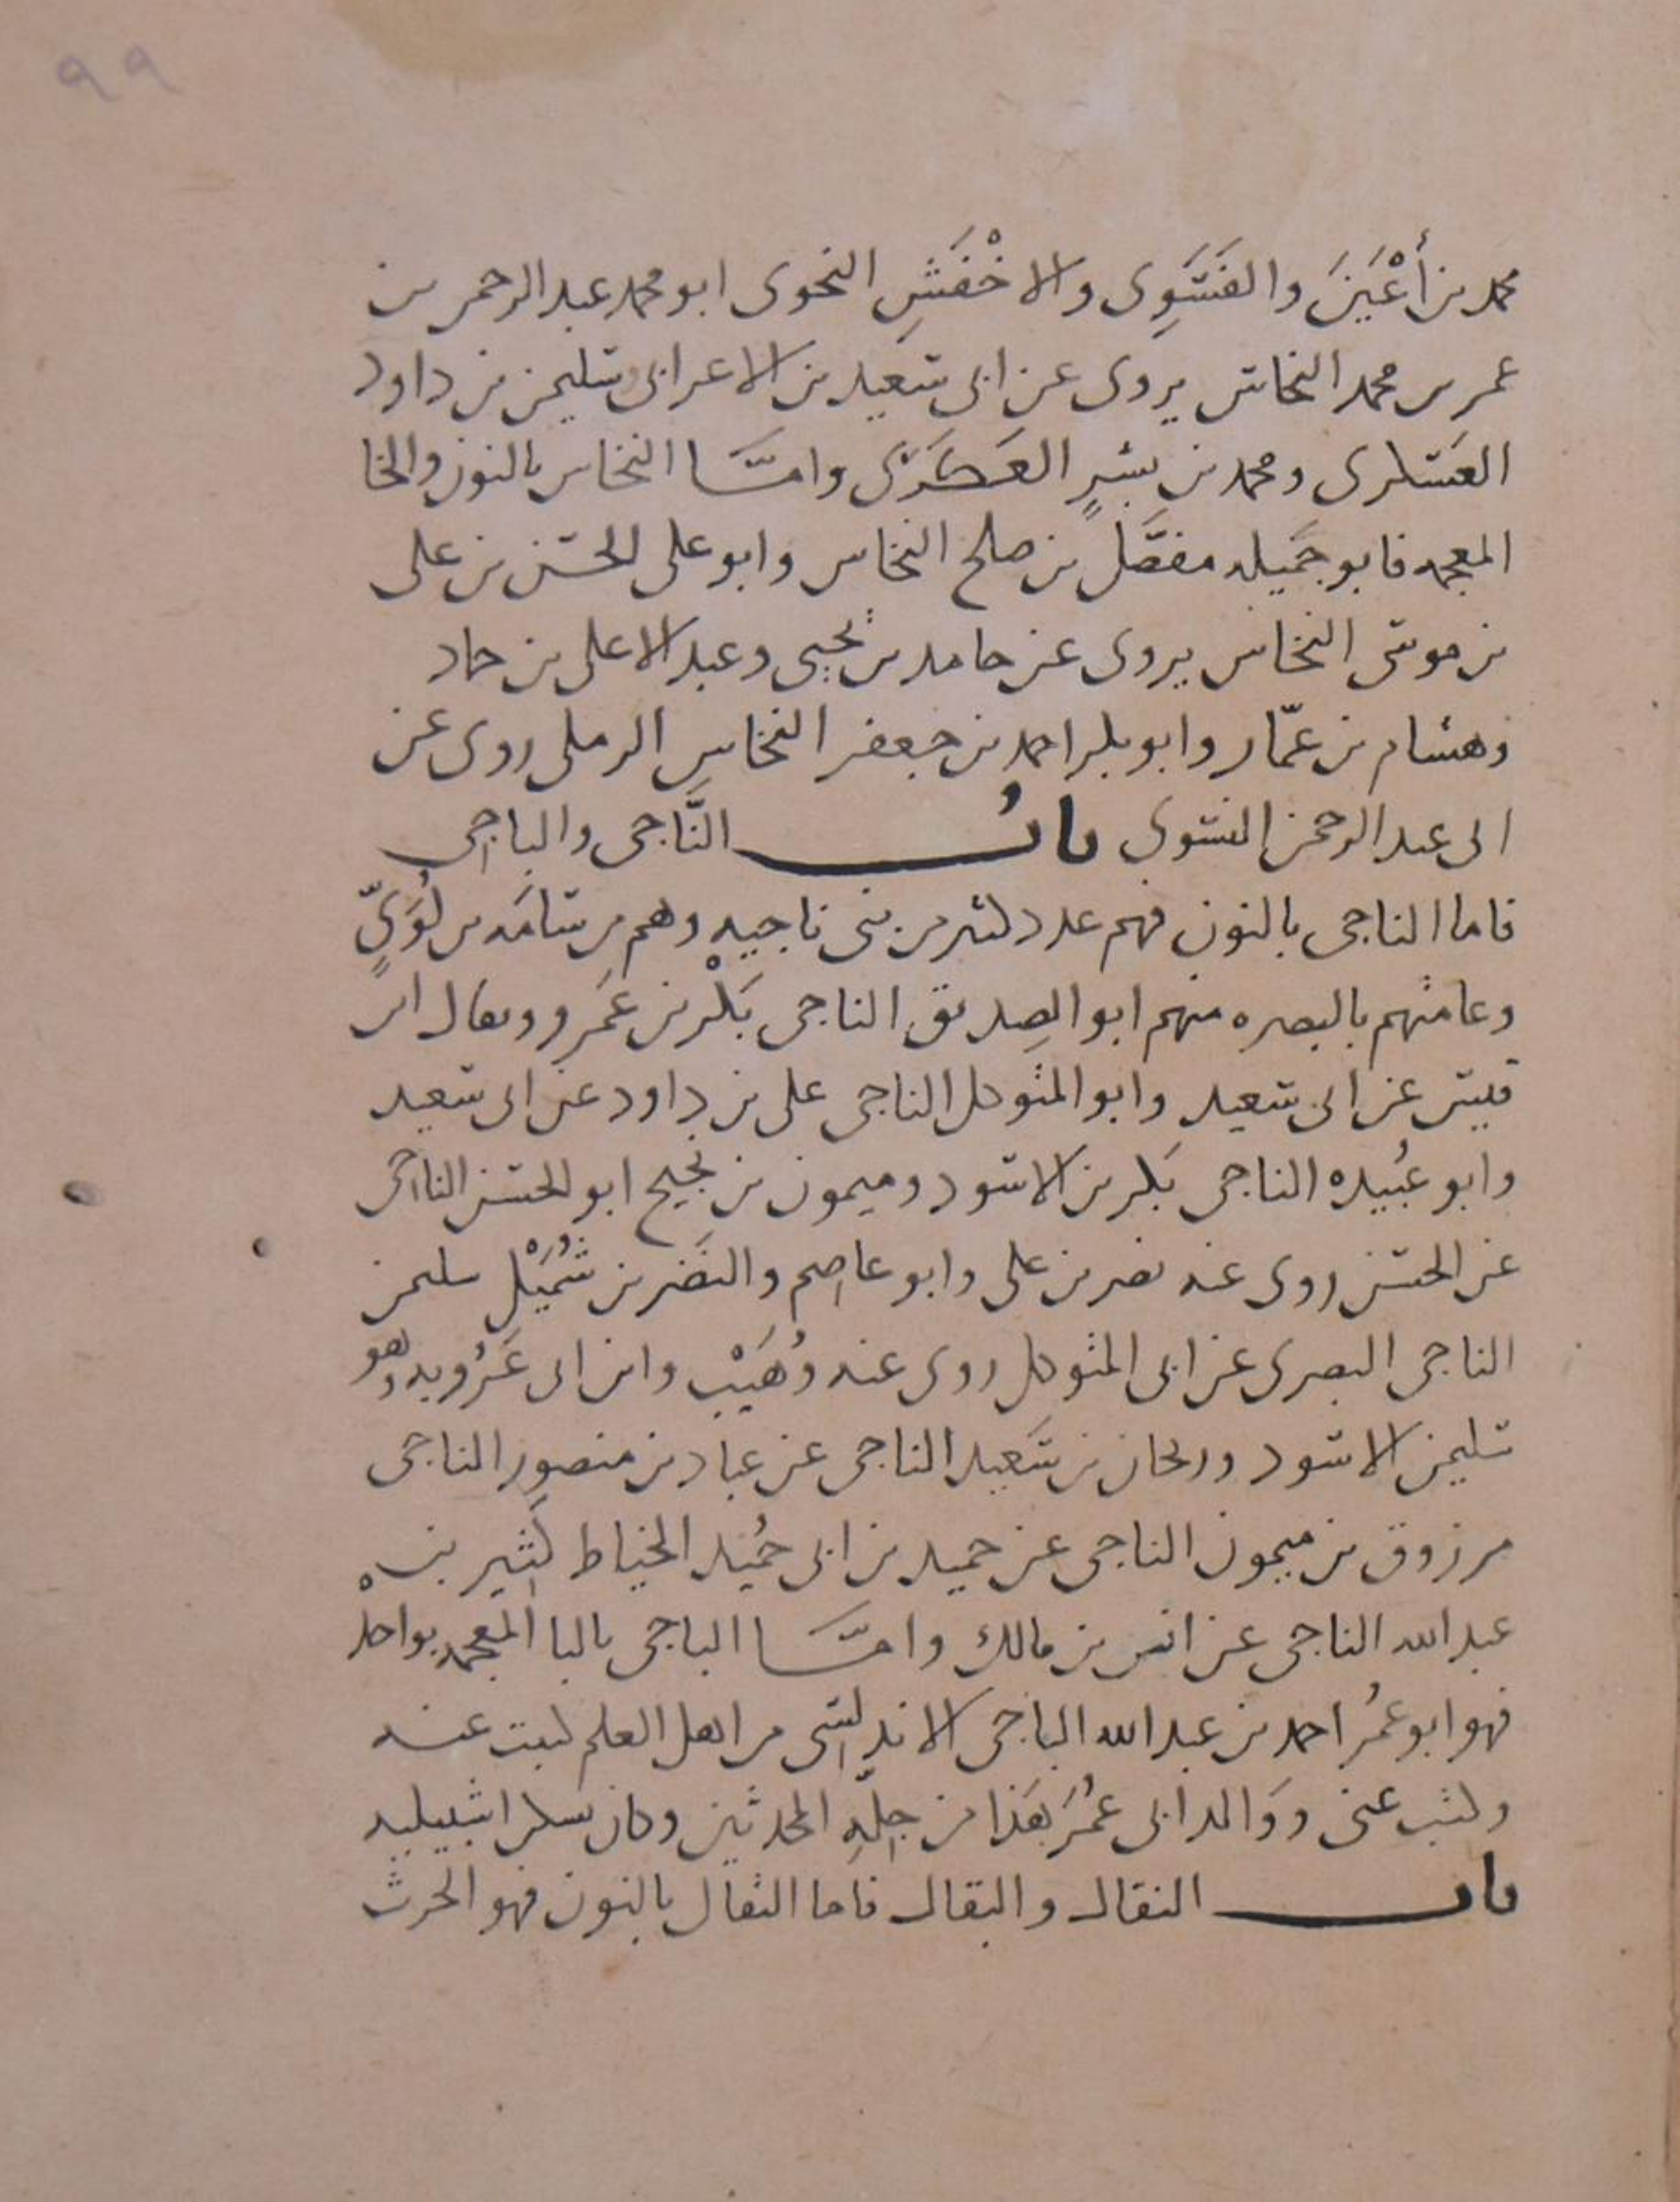 ٩٩
محمد بن أَعْيَنَ والفَسَوِى والاخْفَشِ النحوى ابو محمد عبد الرحمن بن
عمر بن محمد النحاس يروى عن ابى سعيد بن الاعرابى وسليمن بن داود
العسكرى ومحمد بن بشرٍ العَكَرَى وامَّا النخاس بالنون والخا
المعجمه فابو جَميله مفضَّل بن صلح النخاس وابو على الحسن بن على
بن موسى النخاس يروى عن حامد بن يحيى وعبد الاعلى بن حماد
وهشام بن عمّار وابو بكر احمد بن جعفر النخاسِ الرملى روى عن
ابى عبد الرحمن النسوى بابُ النَّاجى والباجى
فاما الناجى بالنون فهم عدد كثير من بنى ناجيه وهم مِن سَامَه بن لُؤَىٍّ
وعامتهم بالبصره منهم ابو الصِديق الناجى بَكْر بن عَمرو ويقال ابن
قيس عن ابى سعيد وابو المتوكل الناجى على بن داود عن ابى سعيد
وابو عُبيده الناجى بَكر بن الاسود وميمون بن نجيح ابو الحسن الناجى
عن الحسن روى عنه نصر بن على وابو عاصم والنَضر بن شُمَيْلِ سليمن
الناجى البصرى عن ابى المتوكل روى عنه وُهَيْب وابن ابى عَرُوبه وهو
سليمن الاسود وريحان بن سَعيد الناجى عن عباد بن منصورٍ الناجى
مرزوق بن ميمون الناجى عن حميد بن ابى حُميد الخياط كَثير بن
عبد الله الناجى عن انس بن مالك وامَّا الباجى بالبا المعجمه بواحدهْ
فهو ابو عُمر احمد بن عبد الله الباجى الاندلسى من اهل العلم كتبت عنه
وكتب عنى ووَالد ابى عُمَرَ هَذا من جِلّهِ المحدثين وكان يسكن اشبيليه
باب النقال والبقال فاما النقال بالنون فهو الحرث